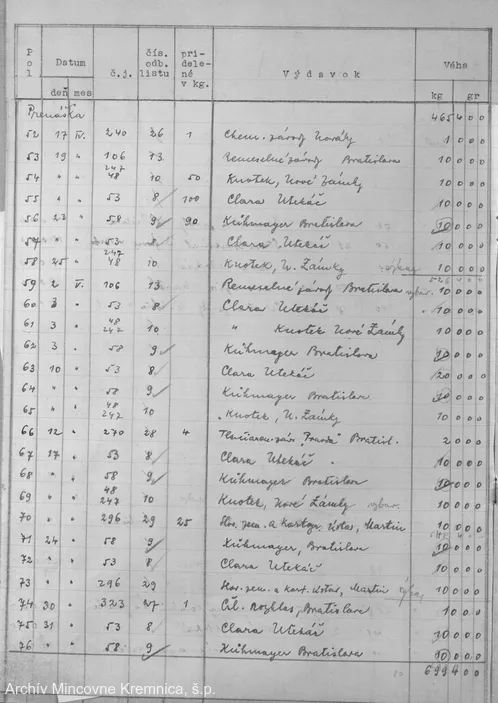 Pol Datum č.j. čís. odb. listu pridelené v kg. Výdavok Váha
deň mes kg gr
Prenáška 465 4 0 0
52 17 IV. 240 26 1 Chem. závody Nováky 1 0 0 0
53 19 " 106 13 Remeselné závody Bratislava 10 0 0 0
54 " " 247 48 10 50 Knotek, Nové Zámky 10 0 0 0
55 " " 53 8 100 Clara Utekáč 10 0 0 0
56 23 " 58 9 90 Kühmayer Bratislava 10 0 0 0
57 " " 53 8 Clara Utekáč 10 0 0 0
58 25 " 247 48 10 Knotek, N. Zámky 10 0 0 0
59 2 V. 106 13 Remeselné závody Bratislava 10 0 0 0
60 3 " 53 8 Clara Utekáč 10 0 0 0
61 3 " 48 247 10 " Knotek Nové Zámky 10 0 0 0
62 3 " 58 9 Kühmayer Bratislava 10 0 0 0
63 10 " 53 8 Clara Utekáč 20 0 0 0
64 " " 58 9 Kühmayer Bratislava 10 0 0 0
65 " " 48 247 10 Knotek, N. Zámky 10 0 0 0
66 12 " 270 28 4 "Pravda" Bratisl. 2 0 0 0
67 17 " 53 8 Clara Utekáč 10 0 0 0
68 " " 58 9 Kühmayer Bratislava 10 0 0 0
69 " " 48 247 10 Knotek, Nové Zámky 10 0 0 0
70 " " 296 29 25 Martin 10 0 0 0
71 24 " 58 9 Kühmayer, Bratislava 10 0 0 0
72 " " 53 8 Clara Utekáč 10 0 0 0
73 " " 296 29 Martin 10 0 0 0
74 30 " 323 27 1 Rozhlas, Bratislava 1 0 0 0
75 31 " 53 8 Clara Utekáč 10 0 0 0
76 " " 58 9 Kühmayer Bratislava 10 0 0 0
699 4 0 0
Archív Mincovne Kremnica, š.p.